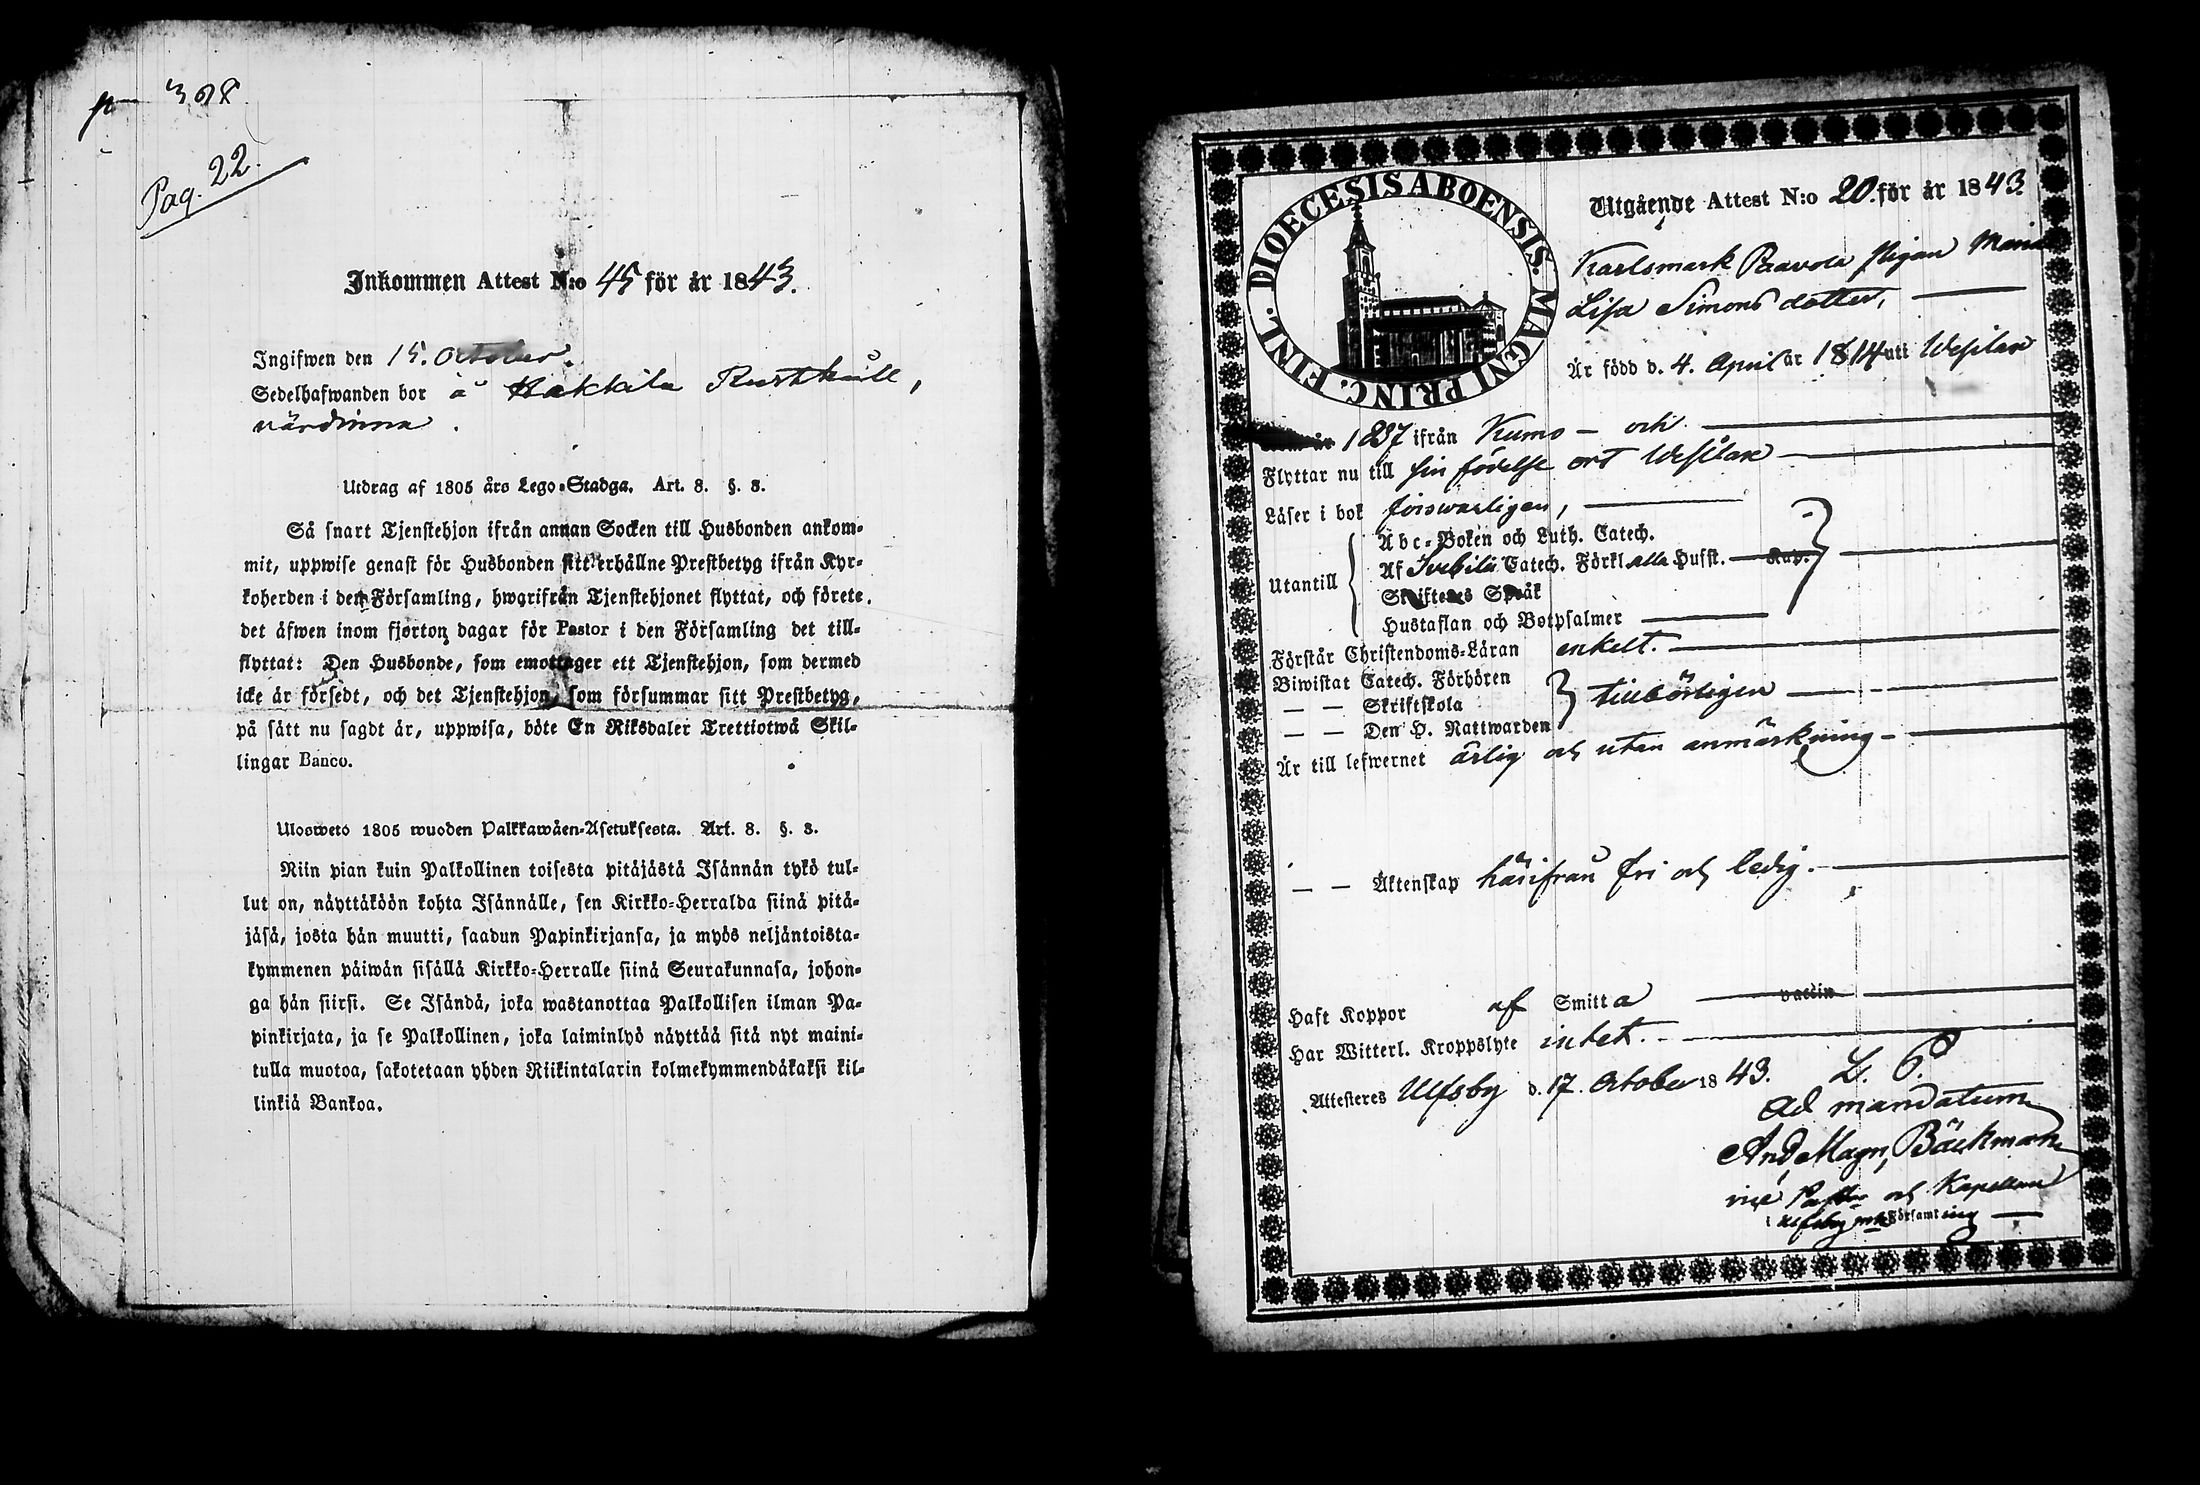 p 308
Pag. 22.
Inkommen Attest N:o 45 för år 1843.
Ingifwen den 15. October.
Sedelhafwanden bor å Hakkila Rusthåll,
värdinna.
Utdrag af 1805 års Lego-Stadga. Art. 8. §. 3.
Så snart Tjenstehjon ifrån annan Socken till Husbonden ankom-
mit, uppwise genast för Husbonden sitt erhållne Prestbetyg ifrån Kyr-
koherden i den Församling, hworifrån Tjenstehjonet flyttat, och förete
det äfwen inom fjorton dagar för Pastor i den Församling det till-
flyttat: Den Husbonde, som emottager ett Tjenstehjon, som dermed
icke är försedt, och det Tjenstehjon, som försummar sitt Prestbetyg,
på sätt nu sagdt är, uppwisa, böte En Riksdaler Trettiotwå Skil-
lingar Banco.
Uloswetö 1805 wuoden Palkkawäen-Asetuksesta. Art. 8. §. 3.
Niin pian kuin Palkollinen toisesta pitäjästä Isännän tykö tul-
lut on, näyttäköön kohta Isännälle, sen Kirkko-Herralda siinä pitä-
jäsä, josta hän muutti, saadun Papinkirjansa, ja myös neljäntoista-
kymmenen päiwän sisällä Kirkko-Herralle siinä Seurakunnasa, johon-
ga hän siirsi. Se Isändä, joka wastanottaa Palkollisen ilman Pa-
pinkirjata, ja se Palkollinen, joka laiminlyö näyttää sitä nyt maini-
tulla muotoa, sakotetaan yhden Riikintalarin kolmekymmendäkaksi kil-
linkiä Bankoa.
DIOECESIS ABOENSIS. MAGNI PRINC. FINL.
Utgående Attest N:o 20. för år 1843.
Karlsmark Paavola Pigan Maria
Lisa Simonsdotter,
Är född d. 4. April år 1814 uti Wesilax
år 1837 ifrån Kumo – och
Flyttar nu till sin födelse ort Wesilax
Läser i bok försvarligen,
Utantill
Abc-Boken och Luth. Catech.
Af Svebilii Catech. Förkl. alla Hufst. Kap.
Skriftenes Språk
Hustaflan och Botpsalmer
Förstår Christendoms-Läran enkelt.
Biwistat Catech. Förhören
— — Skriftskola
— — Den H. Nattwarden
tillbörligen
Är till lefwernet ärlig och utan anmärkning
— — Äktenskap härifrån fri och ledig.
Haft Koppor af Smitta vaccin
Har Witterl. Kroppslyte intet.
Attesteres Ulfsby d. 17. October 1843. L. P.
Ad mandatum
And Magn, Bäckman
vice Pastor och Kapellan
i Ulfsby Församling